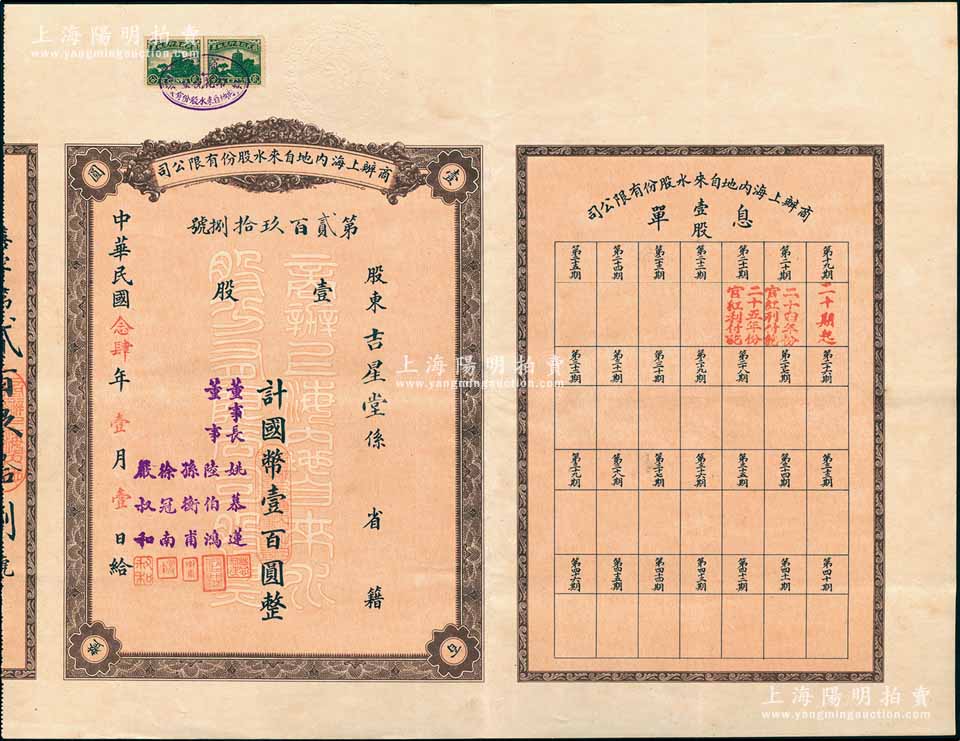 上海陽明拍賣
www.yangmingauction.com
商辦上海內地自來水股份有限公司
壹
百
圓
第貳百玖拾捌號
股東吉星堂係 省 籍
壹股
計國幣壹百圓整
董事長 姚慕蓮
董事 陸伯鴻
孫衡甫
徐冠南
嚴叔和
中華民國念肆年壹月壹日給
第貳百玖拾捌號
商辦上海內地自來水股份有限公司
壹股
息單
第十九期
第二十期
第二十一期
第二十二期
第二十三期
第二十四期
第二十五期
二十期起
二十四年份官紅利付訖
二十五年份官紅利付訖
第二十六期
第二十七期
第二十八期
第二十九期
第三十期
第三十一期
第三十二期
第三十三期
第三十四期
第三十五期
第三十六期
第三十七期
第三十八期
第三十九期
第四十期
第四十一期
第四十二期
第四十三期
第四十四期
第四十五期
第四十六期
上海陽明拍賣
www.yangmingauction.com
上海陽明拍賣
www.yangmingauction.com